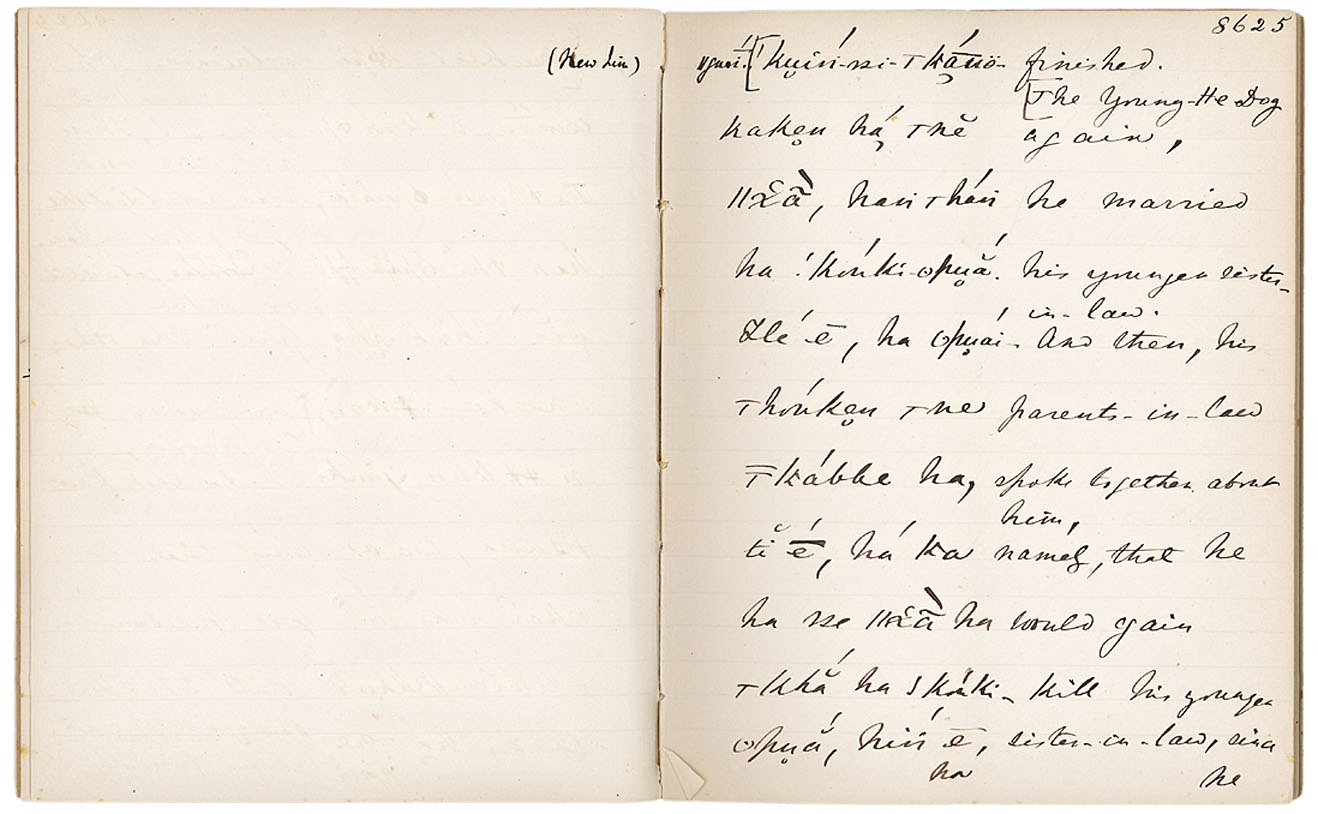 8625
(New line) [kuiń-ssi-Tkấnö- finished.
[The Young-He Dog
kaken há Tnĕ again,
ǁxã̀, han Thań he married
ha ǃkóńki-opuắ. his younger sister-
in-law.
Hé ē, ha opuaí- And then, his
Thóńken Tne parents-in-law
Tkábbe ha, spoke together about
him,
tĭ ḗ, há ka namely, that he
ha sse ǁxã̀ ha would again
Tkhắ ha ǃkóńki- kill his younger
opuắ, hiń ē, sister-in-law, since
ha he